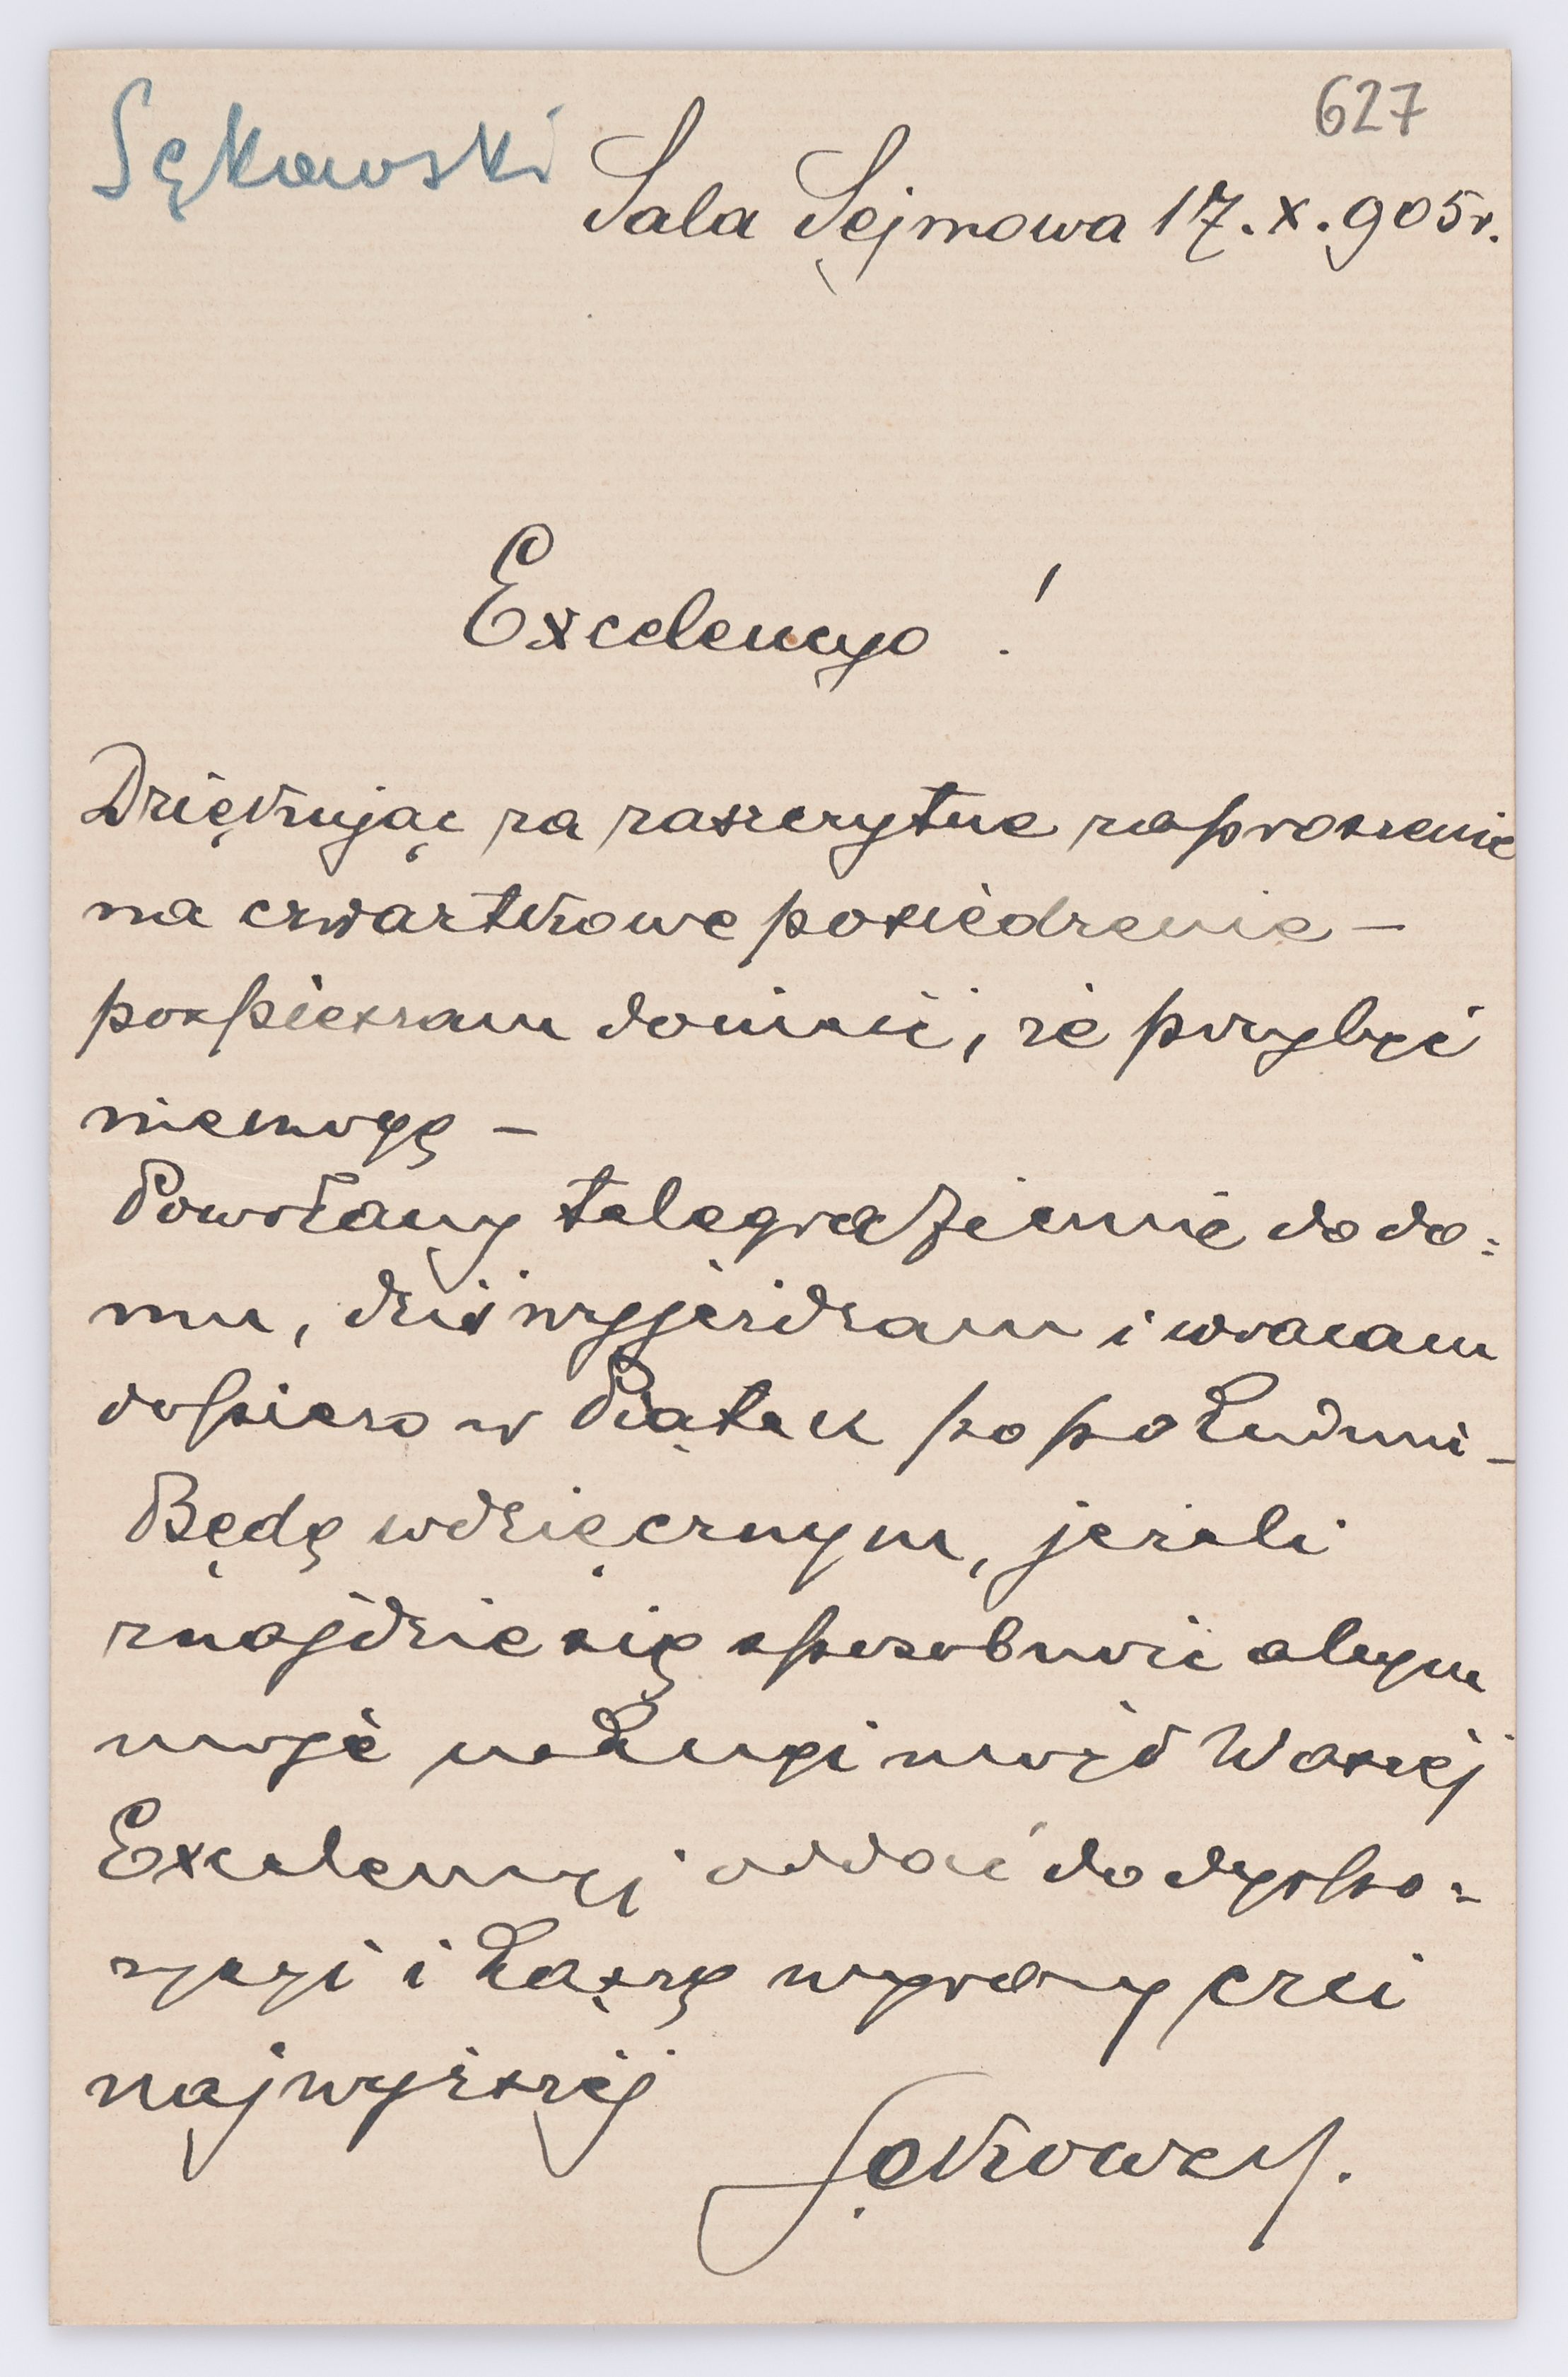 627
Sękowski
Sala Sejmowa 17.X.905r.
Excelencyo!
Dziękując za zaszczytne zaproszenie
na czwartkowe posiedzenie –
pospieszam donieść, że przybyć
niemogę –
Powołany telegraficznie do do=
mu, dziś wyjeżdżam i wracam
dopiero w Piątek po południu –
Będę wdzięcznym, jeżeli
znajdzie się sposobność abym
moje usługi mógł Waszej
Excelencyi oddać do dyspo=
zycyi i łączę wyrazy czci
najwyższej
Sękowski.